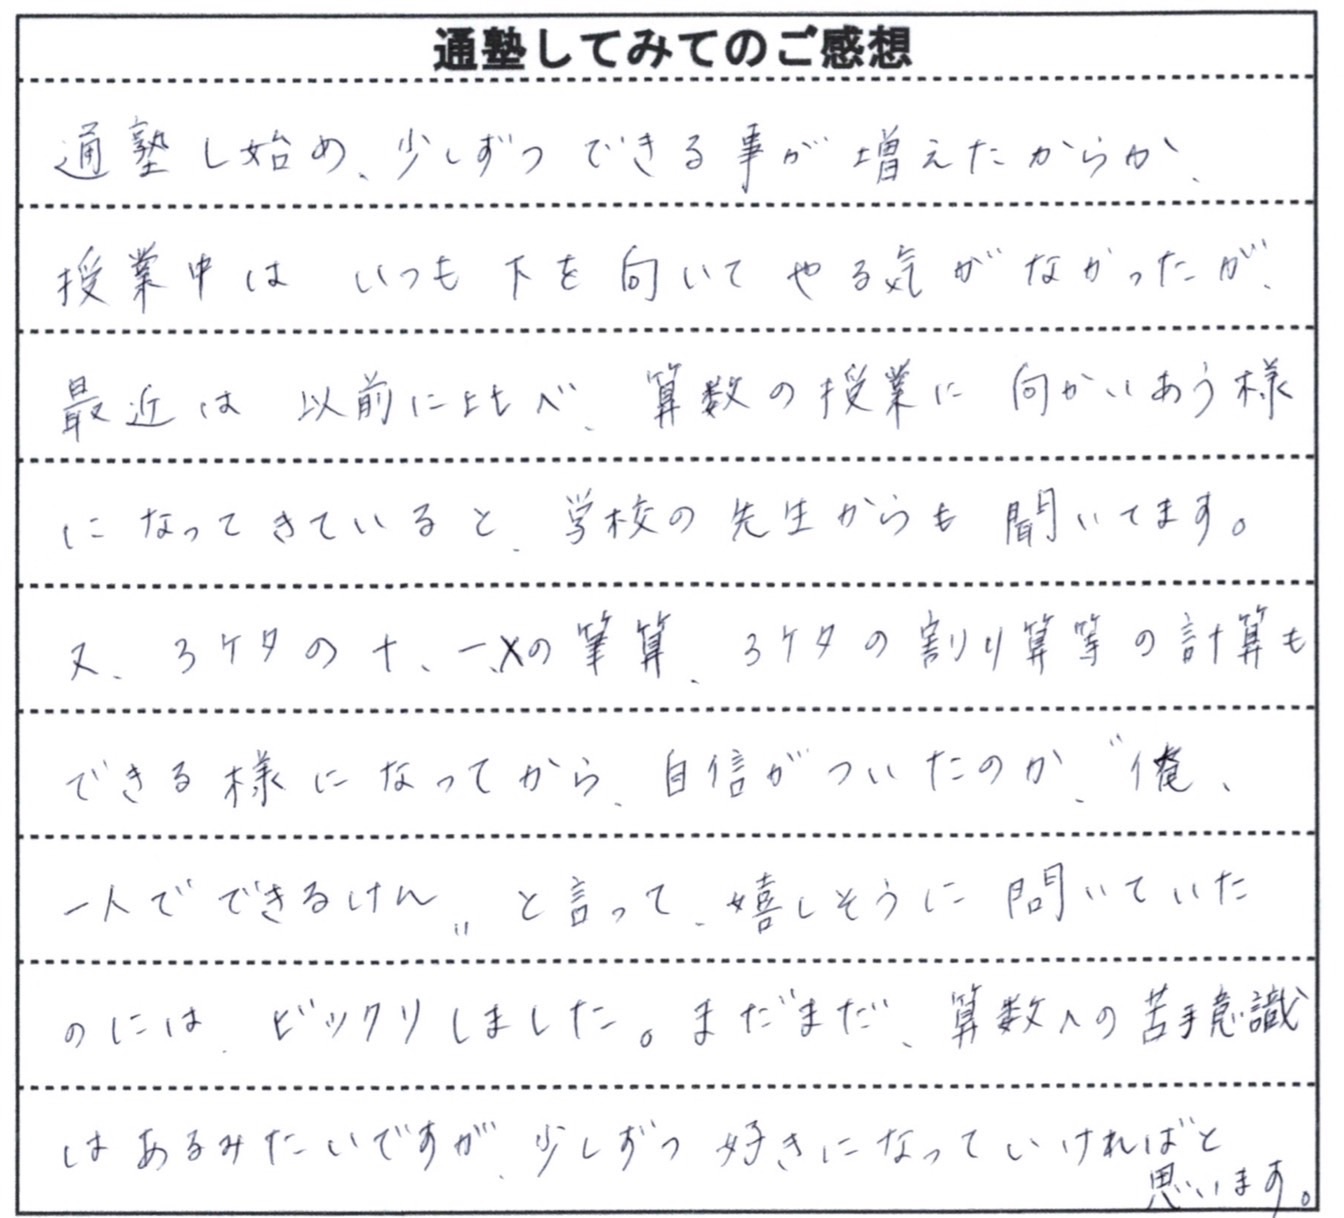 通塾してみてのご感想
通塾し始め、少しずつできる事が増えたからか、
授業中は いつも下を向いてやる気がなかったが、
最近は 以前に比べ、算数の授業に向かいあう様
になってきていると、学校の先生からも聞いてます。
又、3ケタの+、-、×の筆算、3ケタの割り算等の計算も
できる様になってから、自信がついたのか、〝俺、
一人でできるけん〟と言って、嬉しそうに問いていた
のには、ビックリしました。まだまだ、算数への苦手意識
はあるみたいですが、少しずつ好きになっていければと
思います。